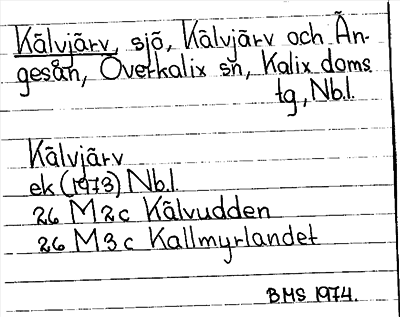 Kälvjärv, sjö, Kälvjärv och Än-
gesån, Överkalix sn, Kalix doms
tg, Nb.l.
Kälvjärv
ek (1973) Nb.l.
26 M 2 c Kälvudden
26 M 3 c Kallmyrlandet
BMS 1974.